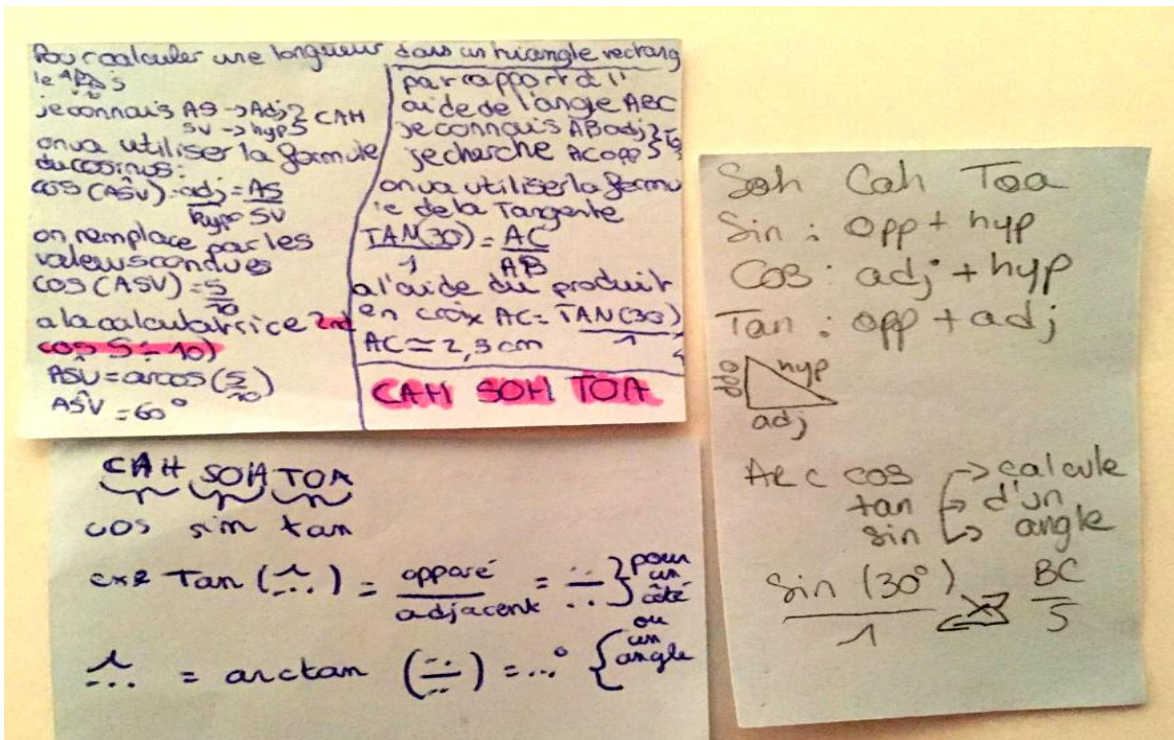 Pour calculer une longueur dans un triangle rectang
le
je connais AS → Adj } CAH
SV → hyp
on va utiliser la formule
du cosinus:
cos (AŜV) = adj = AS
hypo SV
on remplace par les
valeurs connues
cos (ASV) = 5
10
a la calculatrice 2nd
cos 5 ÷ 10)
AŜV = arcos (5/10)
AŜV = 60°
par rapport à l'
aide de l'angle ABC
je connais AB adj }
je cherche AC opp
on va utiliser la formu
le de la Tangente
TAN(30) = AC
1 AB
a l'aide du produit
en croix AC = TAN(30)
1
AC ≃ 2,3 cm
CAH SOH TOA
CAH SOH TOA
cos sin tan
Tan (^...) = opparé = ... } pour
adjacent un
côté
ou
un
^... = arctan (...) = ...° { angle
Soh Cah Toa
Sin : opp + hyp
Cos : adj + hyp
Tan : opp + adj
opp hyp
adj
Arc cos → calcule
tan → d'un
sin → angle
Sin (30°) BC
1 5